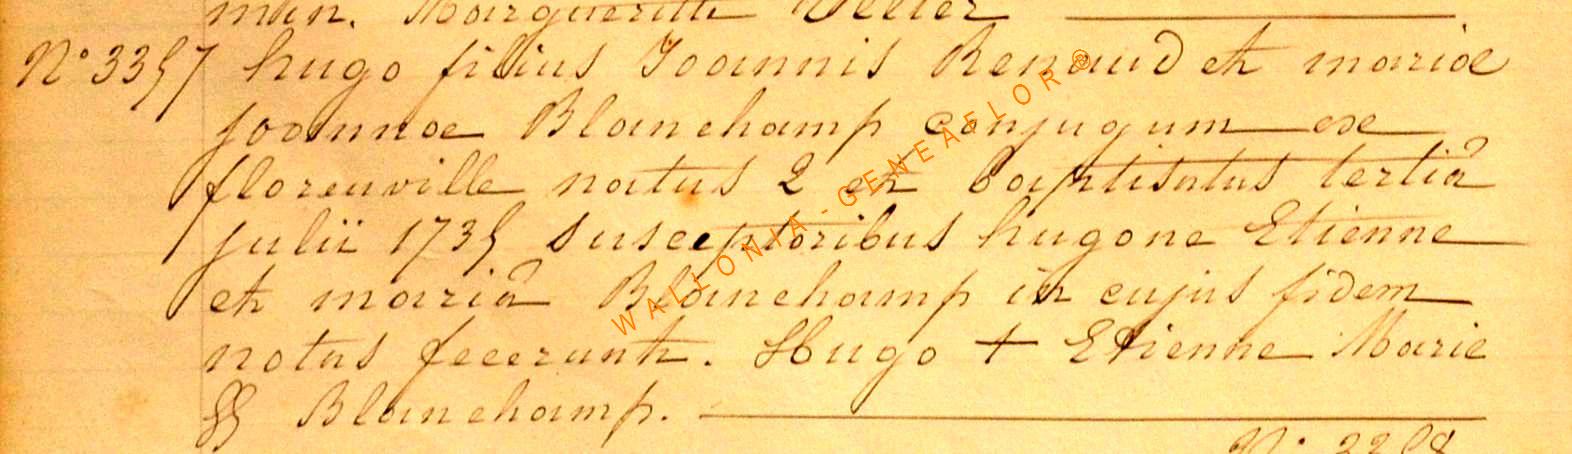 man. Margueritte Veller
N° 3357 hugo filius Joannis Renaud et mariae
joannae Blanchamp conjugum ex
florenville natus 2 et baptisatus tertiâ
julii 1735 susceptoribus hugone Etienne
et mariâ Blanchamp in cujus fidem
notas fecerunt. Hugo + Etienne Marie
§§ Blanchamp.
N° 3358
WALLONIA-GENEAFLOR®